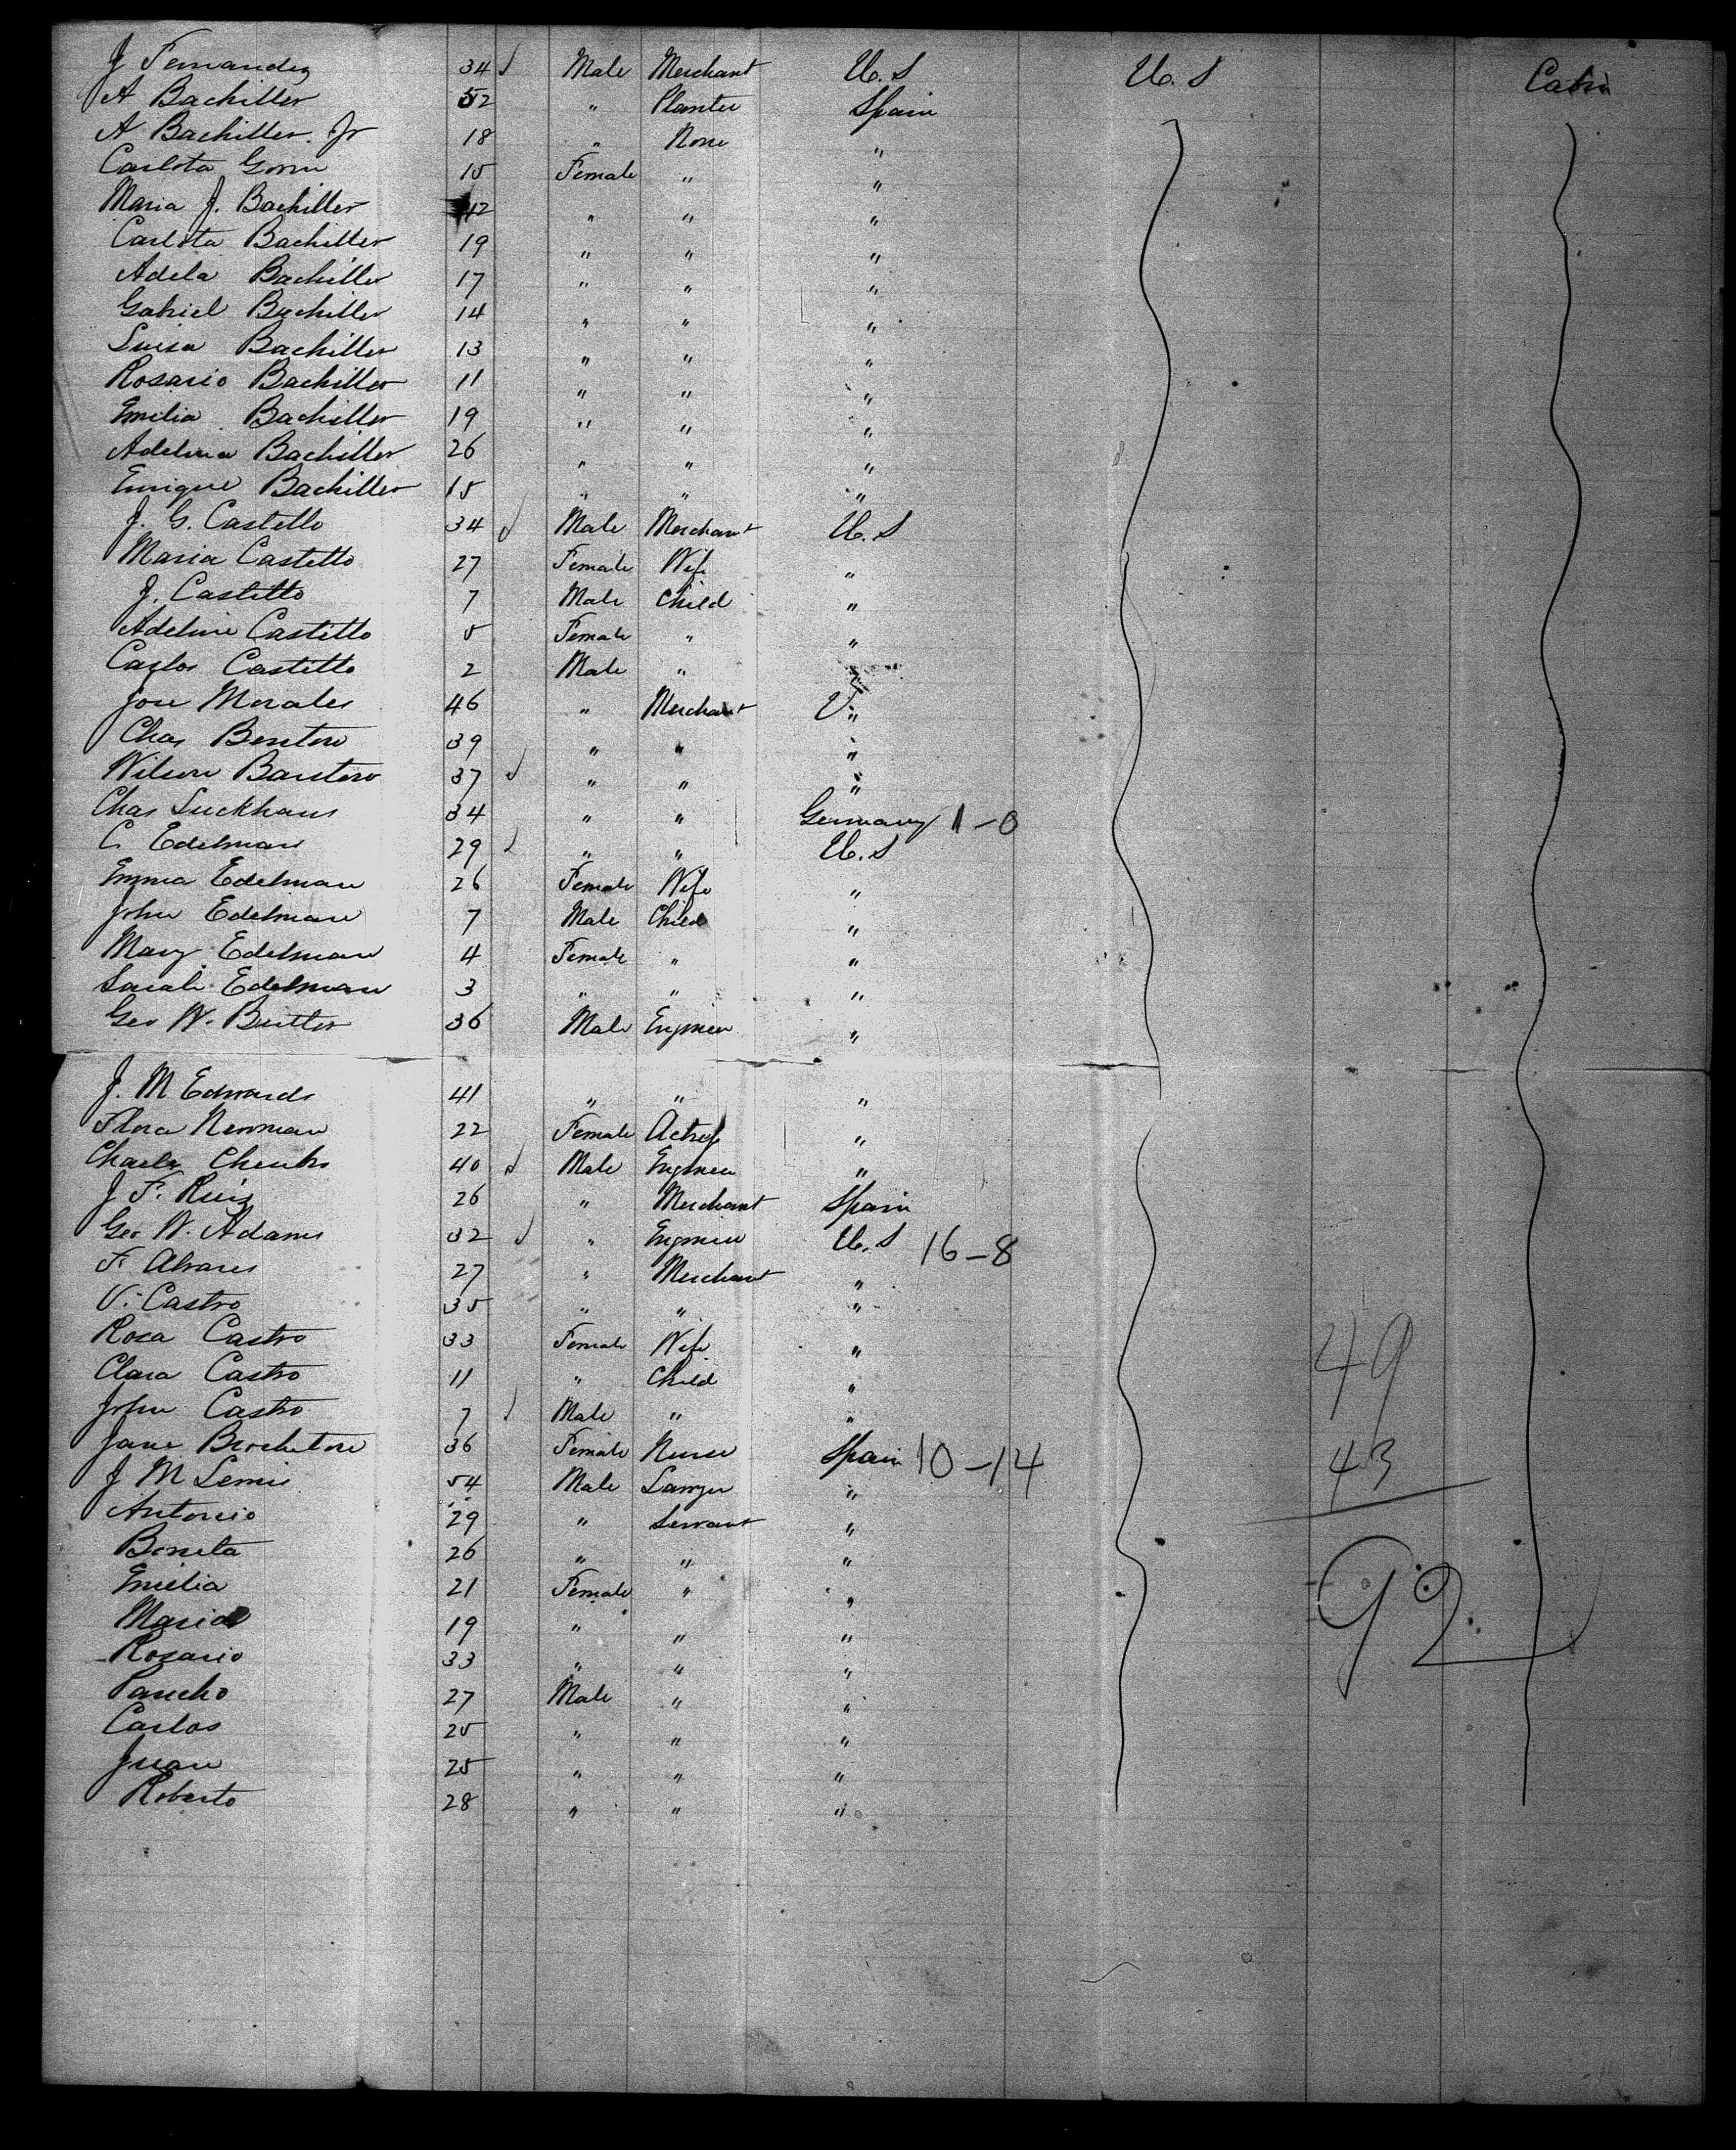 J Fernandez 34 Male Merchant U.S U.S Cabin
A Bachiller 52 " Planter Spain
A Bachiller Jr 18 " None "
Carlota 15 Female " "
Maria J. Bachiller 42 " " "
Carlota Bachiller 19 " " "
Adela Bachiller 17 " " "
Gabriel Bachiller 14 " " "
Luisa Bachiller 13 " " "
Rosario Bachiller 11 " " "
Emilia Bachiller 19 " " "
Adelina Bachiller 26 " " "
Enrique Bachiller 15 " " "
J. G. Castello 34 Male Merchant U.S
Maria Castello 27 Female Wife "
J. Castello 7 Male Child "
Adeline Castello 5 Female " "
Carlos Castello 2 Male " "
Jose Morales 46 " Merchant "
Chas 39 " " "
Wilson Barstow 37 " " "
Chas Luckhaus 34 " " Germany 1-0
C. Edelman 29 " " U.S
Emma Edelman 26 Female Wife "
John Edelman 7 Male Child "
Mary Edelman 4 Female " "
Sarah Edelman 3 " " "
Geo W. Butler 36 Male Engineer "
J. M Edwards 41 " " "
Flora Newman 22 Female Actress "
Charles 40 Male Engineer "
J F. Ruiz 26 " Merchant Spain
Geo W. Adams 32 " Engineer U.S 16-8
F. Alvares 27 " Merchant "
V. Castro 35 " " "
Rosa Castro 33 Female Wife " 49
Clara Castro 11 " Child "
John Castro 7 Male " "
Jane 36 Female Nurse Spain 10-14 43
J M 54 Male Lawyer "
Antonio 29 " Servant "
Benita 26 " " "
Emilia 21 Female " " 92
Maria 19 " " "
Rosario 33 " " "
Pancho 27 Male " "
Carlos 25 " " "
Juan 25 " " "
Roberto 28 " " "